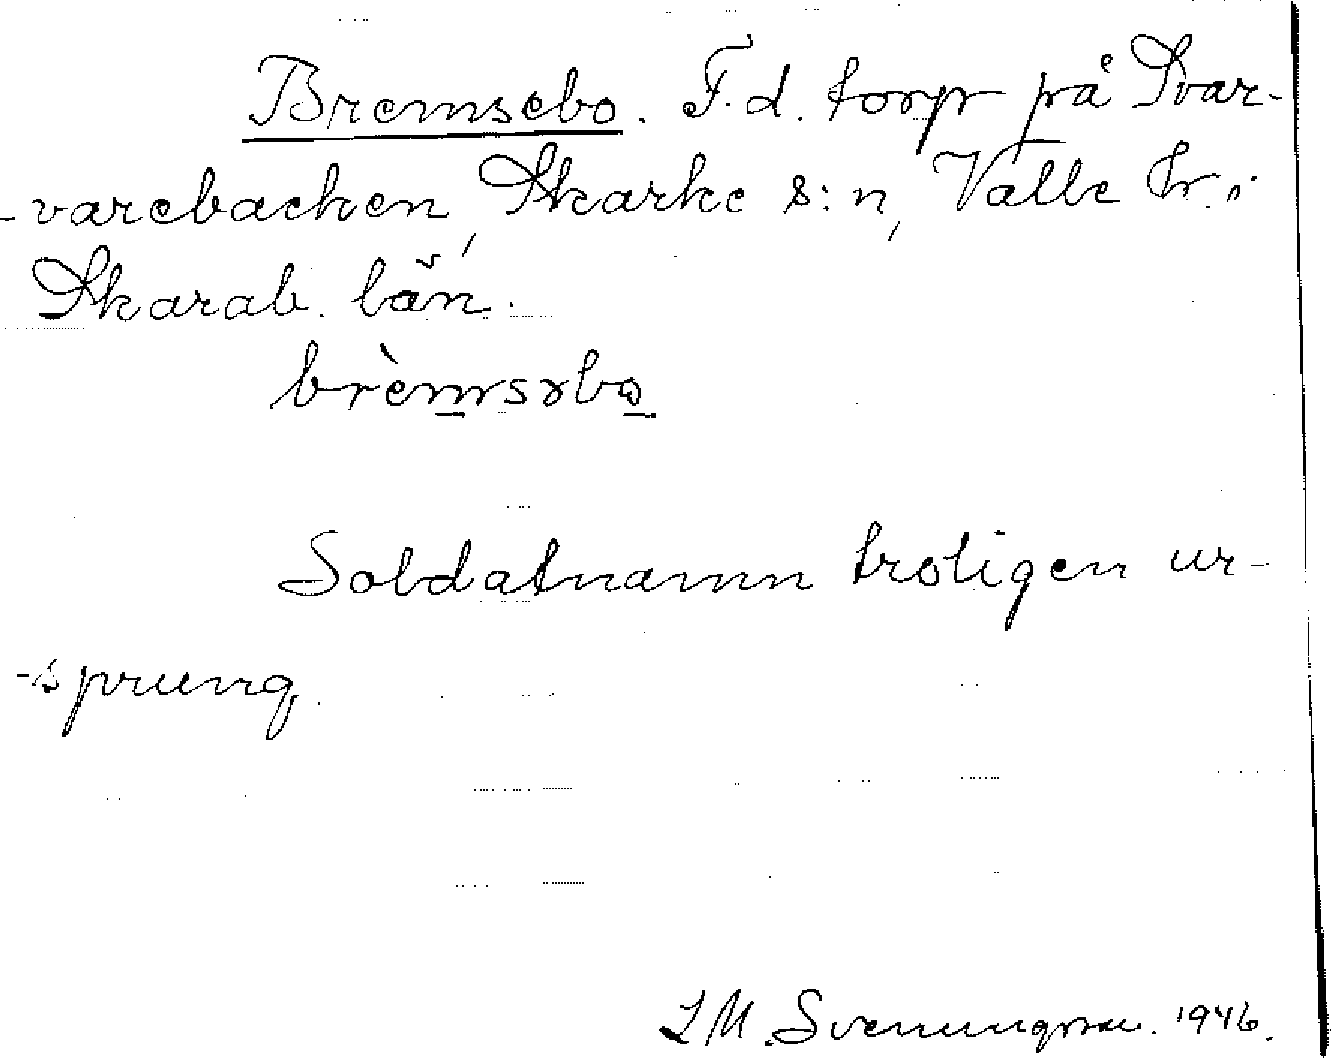 Bremsebo. F. d. torp på Svar-
-varebacken, Skarke s:n, Valle hr. i
Skarab. län.
brèmsəbo
Soldatnamn troligen ur-
-sprung.
L M Svenungsson. 1946.